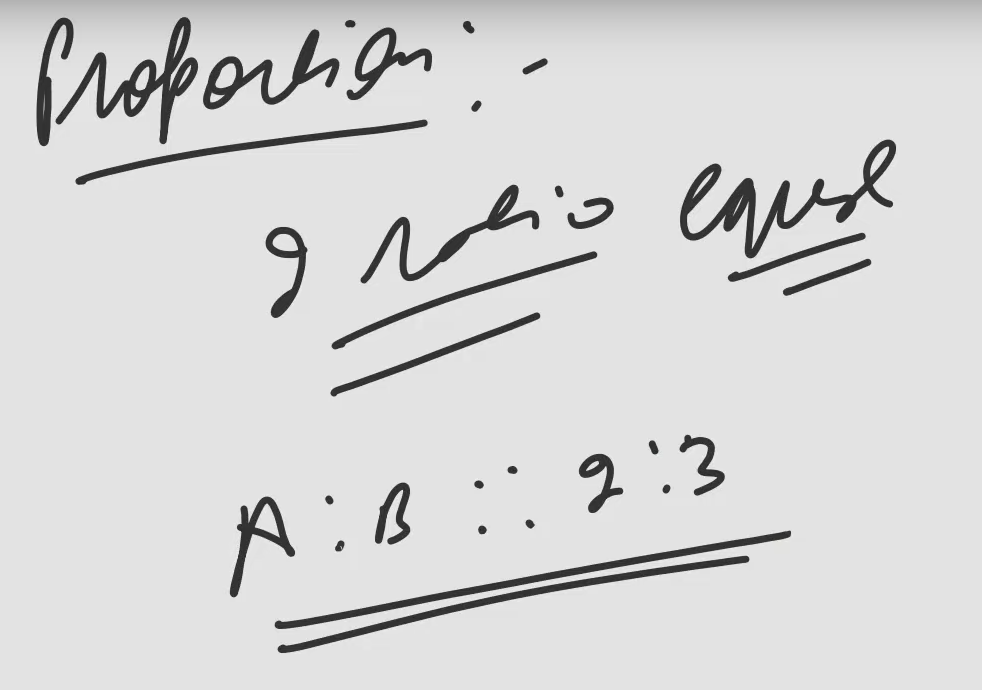 Proportion :-
2 ratio equal
A : B :: 2 : 3